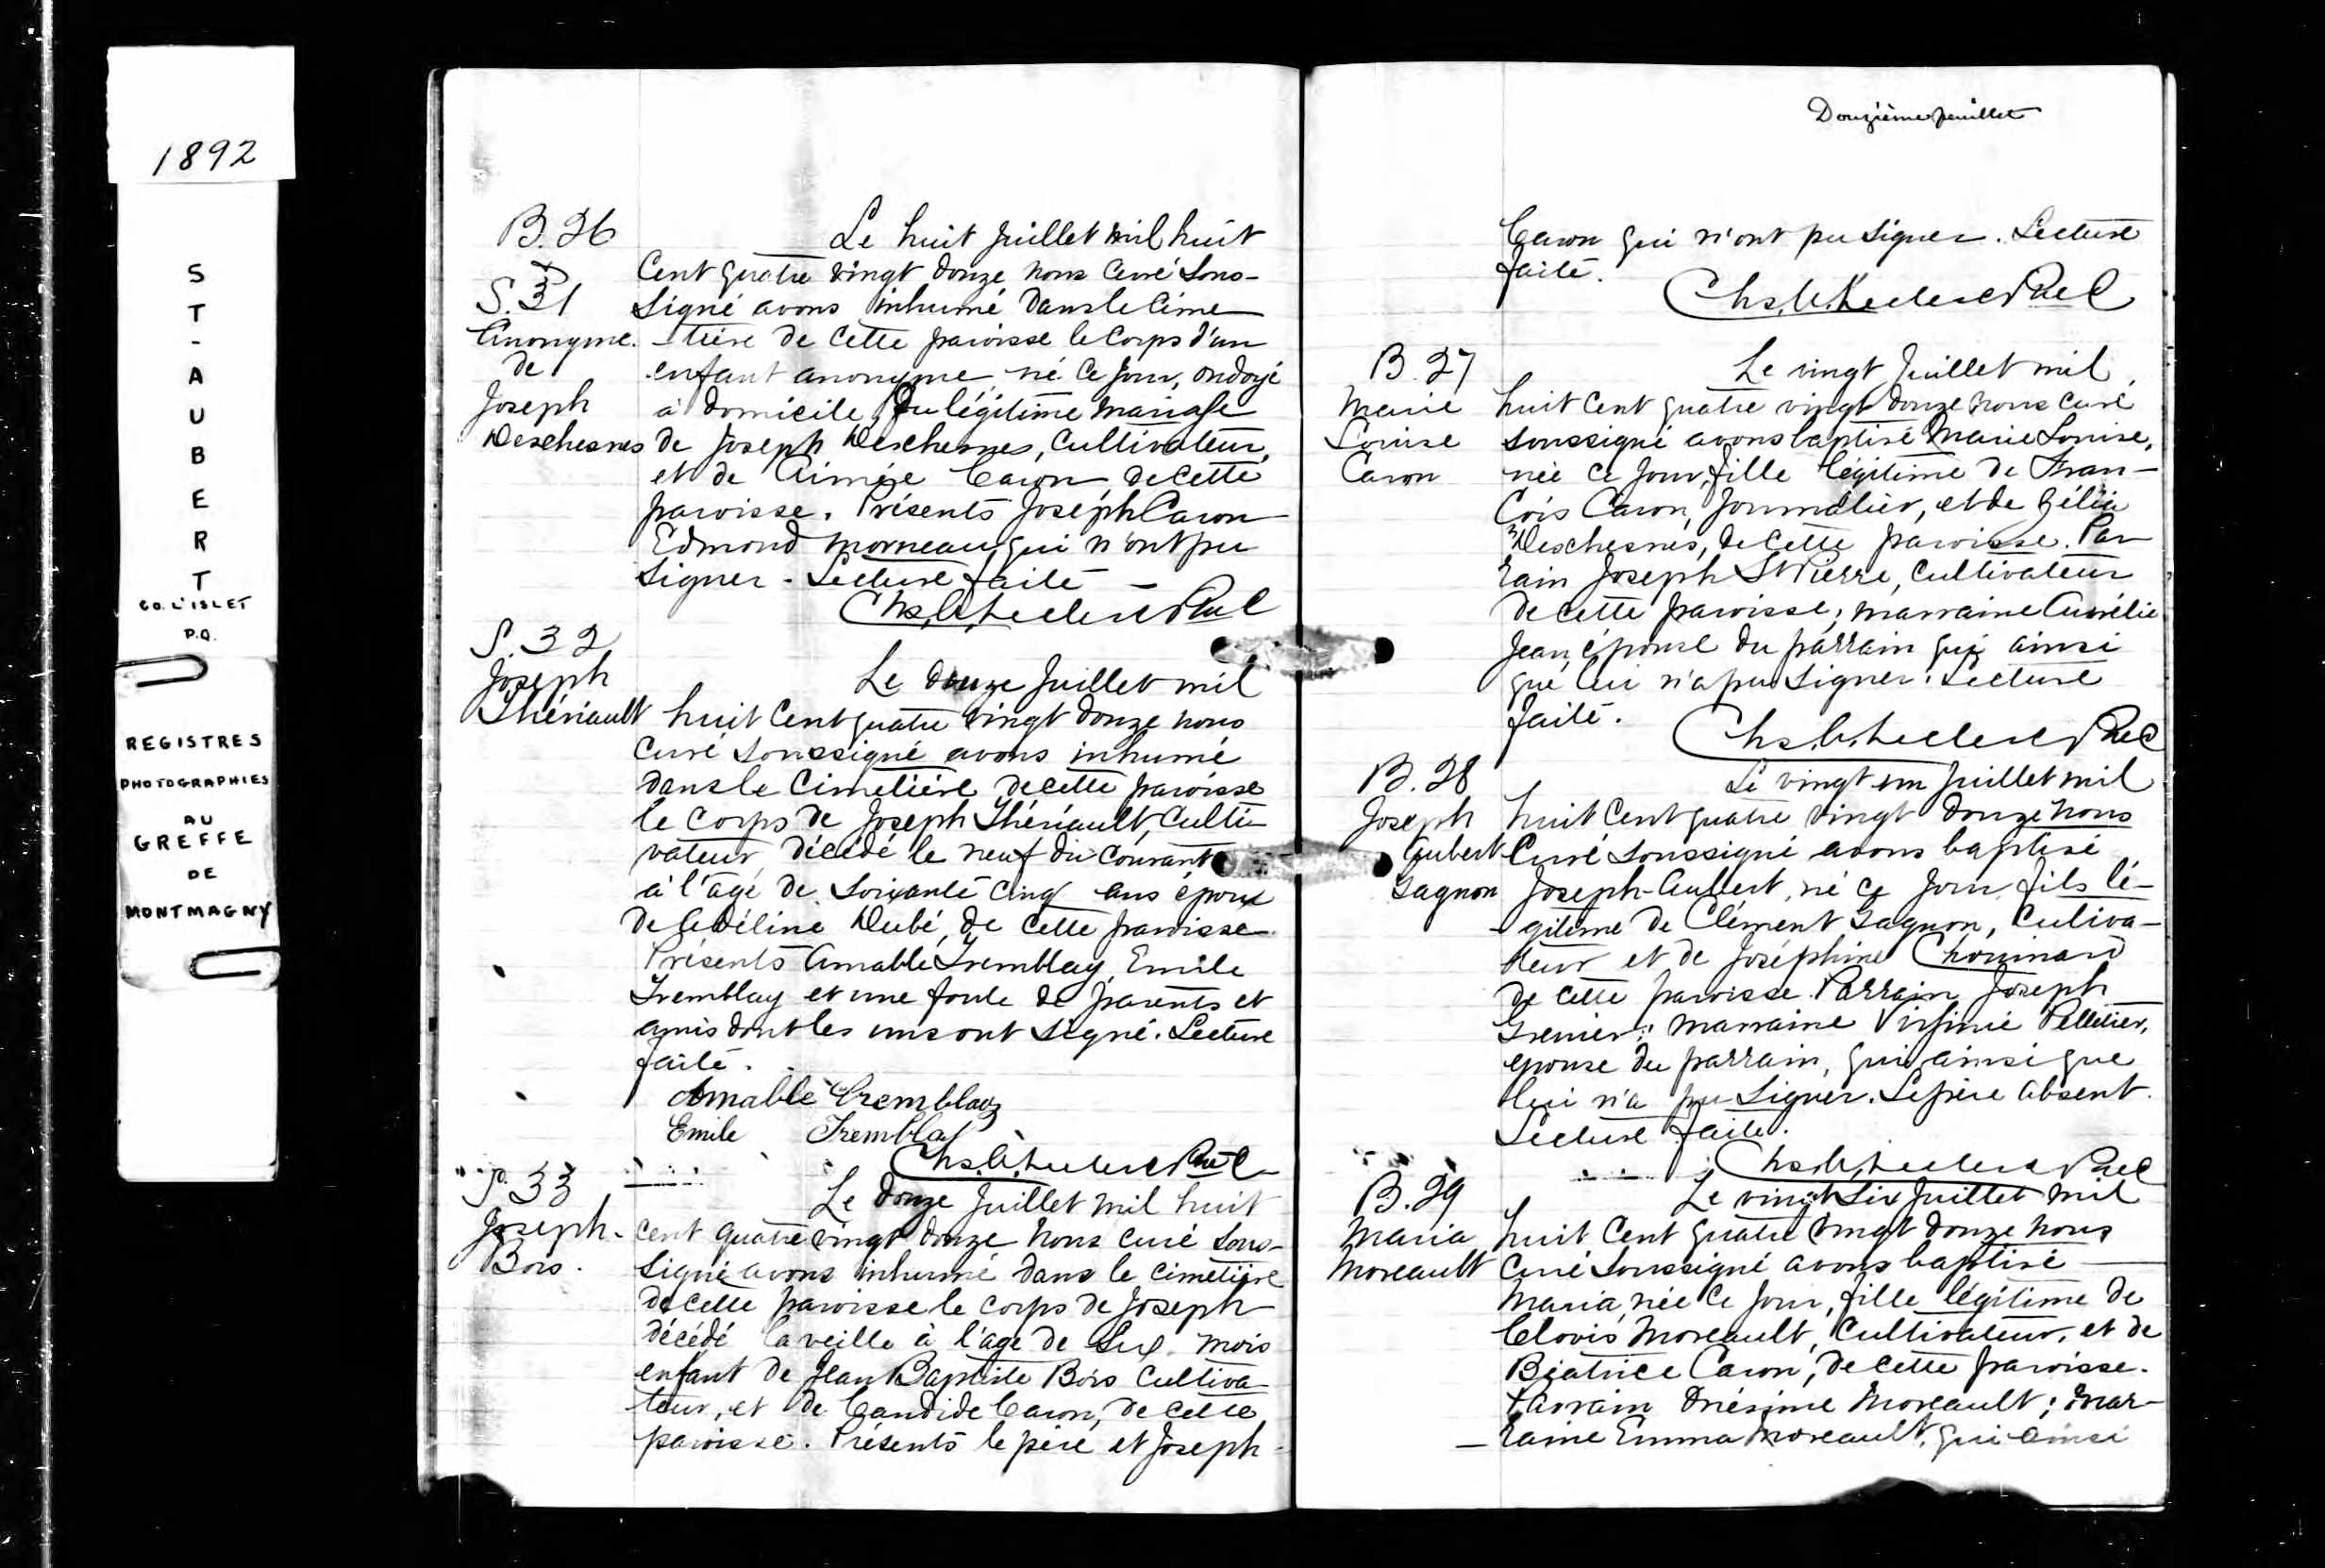 1892
ST-AUBERT
CO. L'ISLET
P.Q.
REGISTRES
PHOTOGRAPHIES
AU
GREFFE
DE
MONTMAGNY
B. 26
S. 31
Anonyme
de
Joseph
Deschesnes
Le huit juillet mil huit
cent quatre vingt douze nous curé sous-
signé avons inhumé dans le cime
-tière de cette paroisse le corps d'un
enfant anonyme, né ce jour, ondoyé
à domicile, du légitime mariage
de Joseph Deschesnes, cultivateur,
et de Aimée Caron, de cette
paroisse. Présents Joseph Caron
Edmond Morneau, qui n'ont pu
signer - Lecture faite -
S. 32
Joseph
Thériault
Le douze juillet mil
huit cent quatre vingt douze nous
curé soussigné avons inhumé
dans le cimetière de cette paroisse
le corps de Joseph Thériault, culti
vateur, décédé le neuf du courant
à l'âge de soixante cinq ans époux
de Adéline Dubé, de cette paroisse
Présents Amable Tremblay, Emile
Tremblay et une foule de parents et
amis dont les uns ont signé. Lecture
faite.
Amable Tremblay
Emile Tremblay
S. 33
Joseph
Bois.
Le douze juillet mil huit
cent quatre vingt douze nous curé sous-
signé avons inhumé dans le cimetière
de cette paroisse le corps de Joseph
décédé la veille à l'âge de six mois
enfant de Jean Baptiste Bois cultiva
teur, et de Candide Caron, de cette
paroisse. Présents le père et Joseph
Douzième feuillet
Caron qui n'ont pu signer. Lecture
faite.
B. 27
Marie
Louise
Caron
Le vingt juillet mil
huit cent quatre vingt douze nous curé
soussigné avons baptisé Marie Louise,
née ce jour, fille légitime de Fran-
çois Caron, journalier, et de Zélia
Deschesnes, de cette paroisse. Par
rain Joseph St Pierre, cultivateur
de cette paroisse; marraine Aurélie
Jean, épouse du parrain qui ainsi
que lui n'a pu signer. Lecture
faite.
B. 28
Joseph
Aubert
Gagnon
Le vingt un juillet mil
huit cent quatre vingt douze nous
Curé soussigné avons baptisé
Joseph-Aubert, né ce jour, fils lé-
-gitime de Clément Gagnon, cultiva-
teur et de Joséphine Chouinard
de cette paroisse. Parrain Joseph
Grenier; marraine Virginie Pelletier,
epouse du parrain, qui ainsi que
lui n'a pu signer. Le père absent.
Lecture faite.
B. 29
Maria
Moreault
Le vingt six juillet mil
huit cent quatre vingt douze nous
curé soussigné avons baptisé
Maria, née ce jour, fille légitime de
Clovis Moreault, cultivateur, et de
Béatrice Caron, de cette paroisse.
Parrain Onésime Moreault; mar-
-raine Emma Moreault, qui ainsi